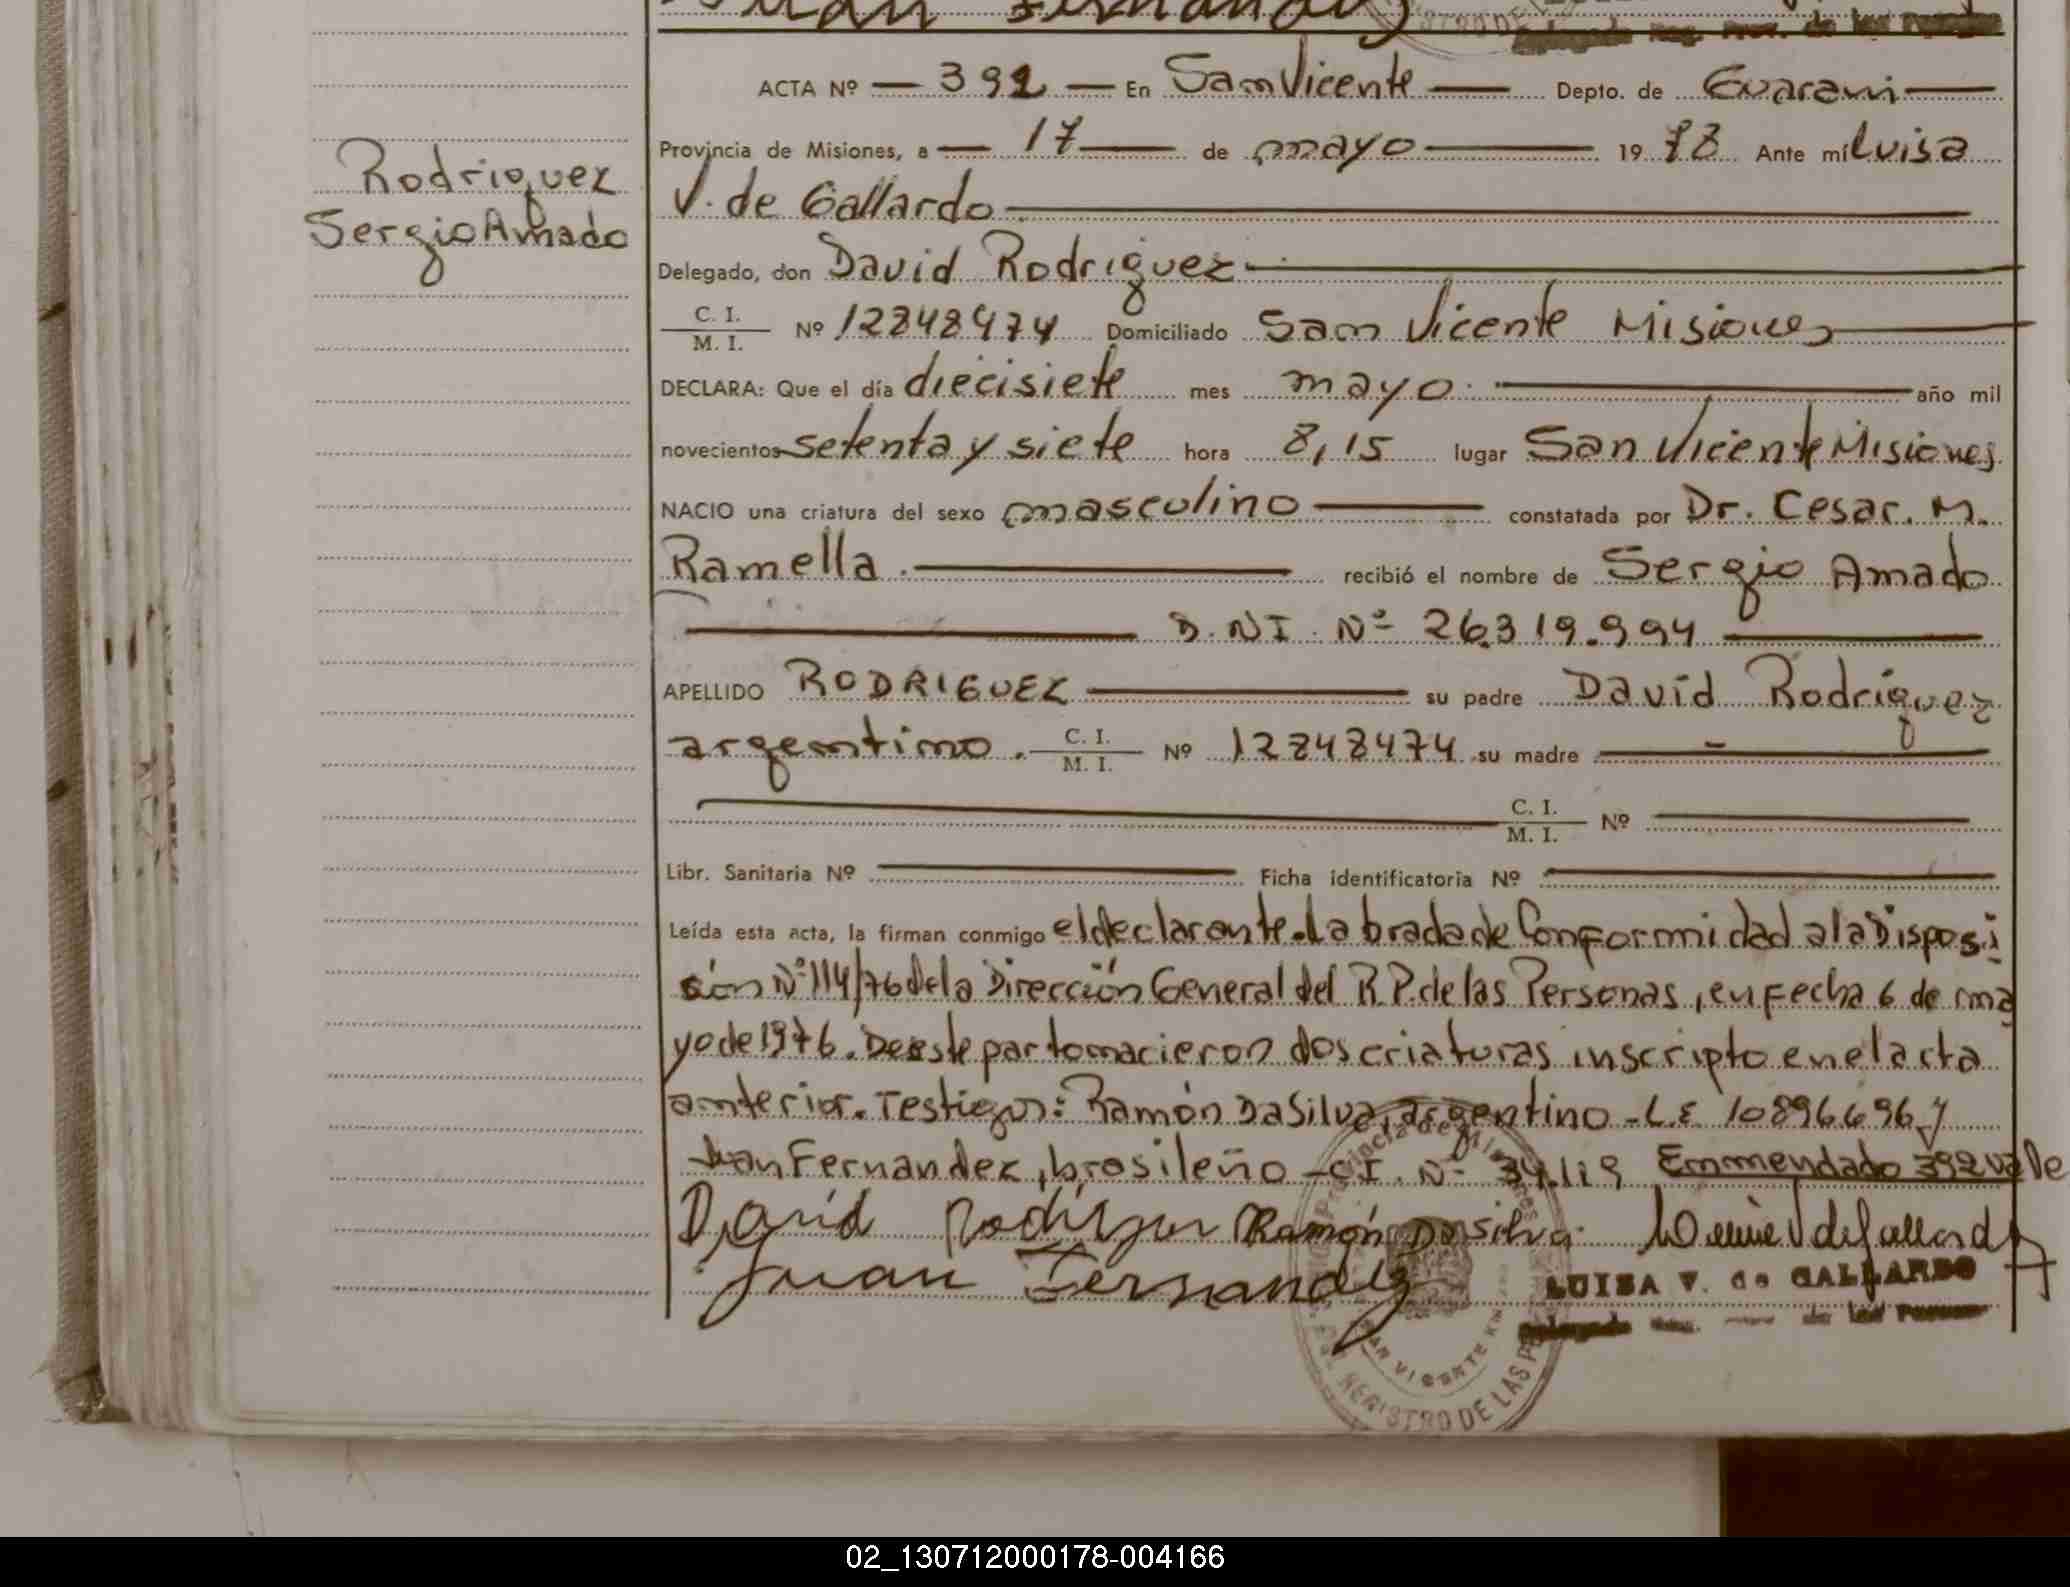 Juan Fernandez
ACTA Nº — 392 — En San Vicente — Depto. de Guarani —
Provincia de Misiones, a — 17 — de mayo — 19 78 Ante mí Luisa
V. de Gallardo —
Rodriguez
Sergio Amado
Delegado, don David Rodriguez —
C. I.
M. I. Nº 12848474 Domiciliado San Vicente Misiones —
DECLARA: Que el día diecisiete mes mayo — año mil
novecientos setenta y siete hora 8,15 lugar San Vicente Misiones
NACIO una criatura del sexo masculino — constatada por Dr. Cesar. M.
Ramella. — recibió el nombre de Sergio Amado
— D.N.I. Nº 26.319.994 —
APELLIDO RODRIGUEZ — su padre David Rodriguez
argentino. C. I.
M. I. Nº 12848474 su madre —
— C. I.
M. I. Nº —
Libr. Sanitaria Nº — Ficha identificatoria Nº —
Leída esta acta, la firman conmigo el declarante. Labrada de Conformidad a la Disposi
sión Nº 114/76 de la Dirección General del R.P. de las Personas, en fecha 6 de ma
yo de 1976. De este parto nacieron dos criaturas inscripto en el acta
anterior. Testigos: Ramón DaSilva, argentino - L.E 10896696 y
Juan Fernandez, brasileño - C.I. Nº 34.119 Emmendado 392 vale
David Rodriguez Ramón Dasilva
Juan Fernandez
LUISA V. de GALLARDO
Provincia de Misiones
SAN VICENTE
REGISTRO DE LAS
02_130712000178-004166